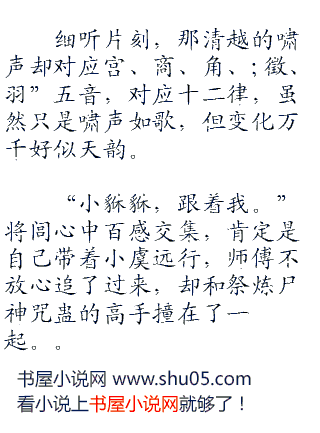 细听片刻，那清越的啸
声却对应宫、商、角、；徵、
羽”五音，对应十二律，虽
然只是啸声如歌，但变化万
千好似天韵。
“小貅貅，跟着我。”
将闾心中百感交集，肯定是
自己带着小虞远行，师傅不
放心追了过来，却和祭炼尸
神咒蛊的高手撞在了一
起。。
书屋小说网 www.shu05.com
看小说上书屋小说网就够了！